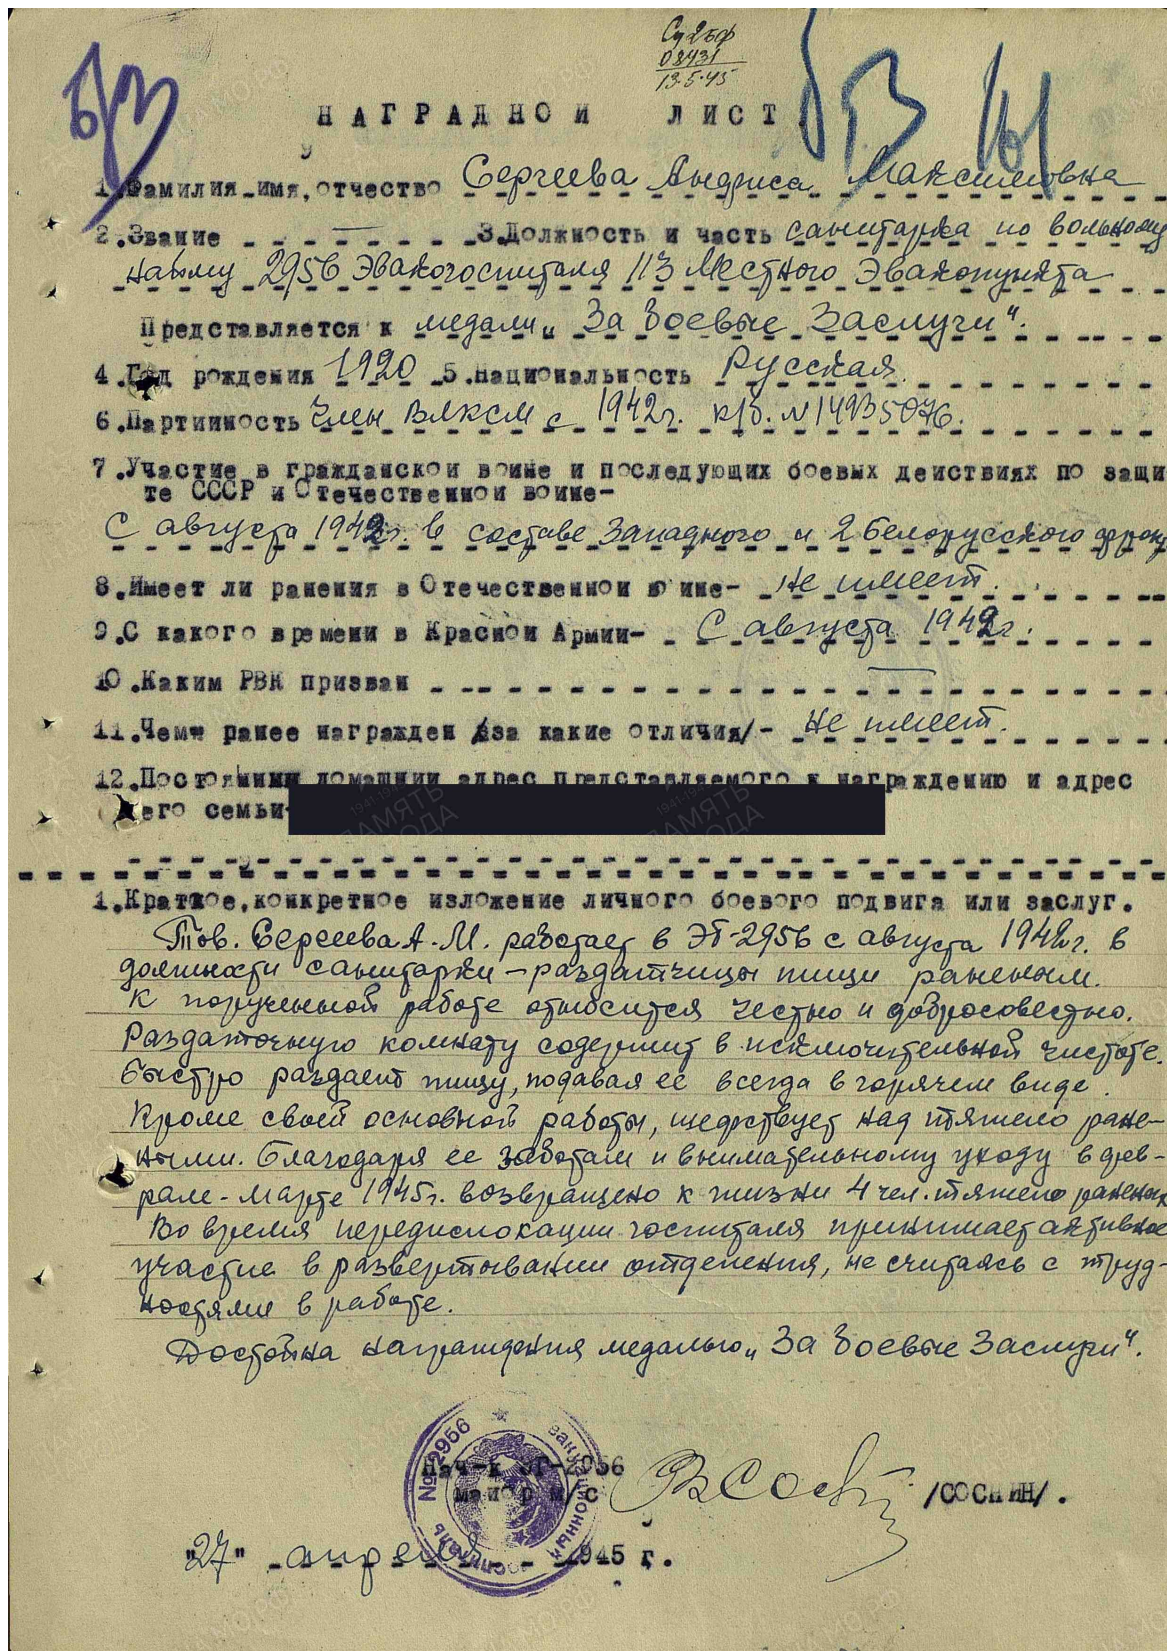 08431
13.5.45
Б/З
БЗ
НАГРАДНОЙ ЛИСТ.
1.Фамилия имя, отчество Сергеева Андриса Максимовна
2.Звание — 3.Должность и часть санитарка по вольному
найму 2956 Эвакогоспиталя 113 Местного Эвакопункта
Представляется к медали „За Боевые Заслуги“.
4.Год рождения 1920 5.Национальность Русская
6.Партийность Член ВЛКСМ с 1942г. к/б. N14935076.
7.Участие в гражданской войне и последующих боевых действиях по защи
те СССР и Отечественной войне-
С августа 1942г. в составе Западного и 2 Белорусского фронт
8.Имеет ли ранения в Отечественной войне- Не имеет.
9.С какого времени в Красной Армии- С августа 1942г.
10.Каким РВК призван —
11.Чем ранее награжден /за какие отличия/- Не имеет.
12.Постоянный домашний адрес представляемого к награждению и адрес
его семьи-
1.Краткое,конкретное изложение личного боевого подвига или заслуг.
Тов. Сергеева А.М. работает в ЭГ-2956 с августа 1942г. в
должности санитарки – раздатчицы пищи раненым.
К порученной работе относится честно и добросовестно.
Раздаточную комнату содержит в исключительной чистоте.
Быстро раздает пищу, подавая ее всегда в горячем виде.
Кроме своей основной работы, шефствует над тяжело ране-
ными. Благодаря ее заботам и внимательному уходу в фев-
рале-марте 1945г. возвращено к жизни 4 чел. тяжело раненых
Во время передислокации госпиталя принимает активное
участие в развертывании отделения, не считаясь с труд-
ностями в работе.
Достойна награждения медалью „За Боевые Заслуги“.
№ 2956
Нач-к ЭГ-2956
майор м/с /СОСНИН/.
"27" апреля 1945 г.